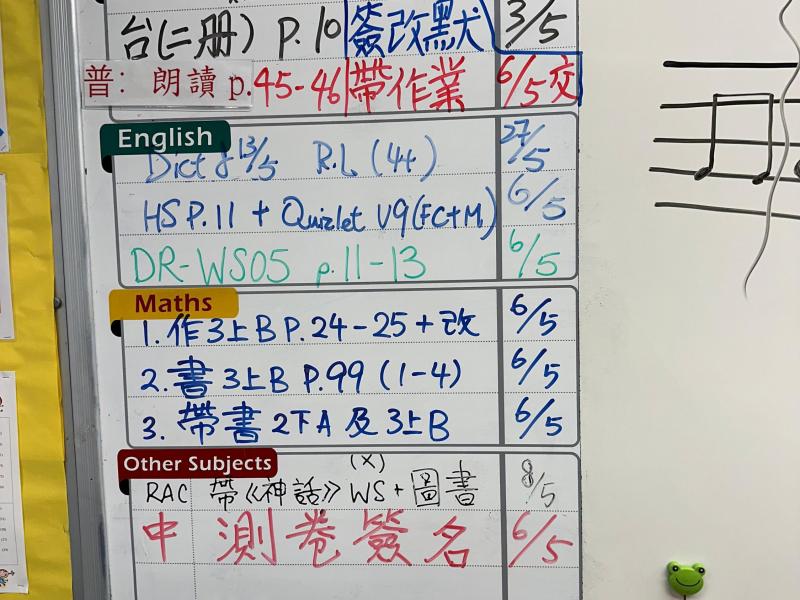 台(二册) P.10 簽改默 3/5
普: 朗讀 p.45-46 帶作業 6/5交
English
Dict 8 13/5 R.L (4t) 27/5
HS P.11 + Quizlet V9(FC+M) 6/5
DR-WS05 p.11-13 6/5
Maths
1. 作3上B P.24-25 + 改 6/5
2. 書3上B P.99 (1-4) 6/5
3. 帶書2下A 及 3上B 6/5
Other Subjects
(X)
RAC 帶《神話》WS + 圖書 8/5
中 測卷簽名 6/5